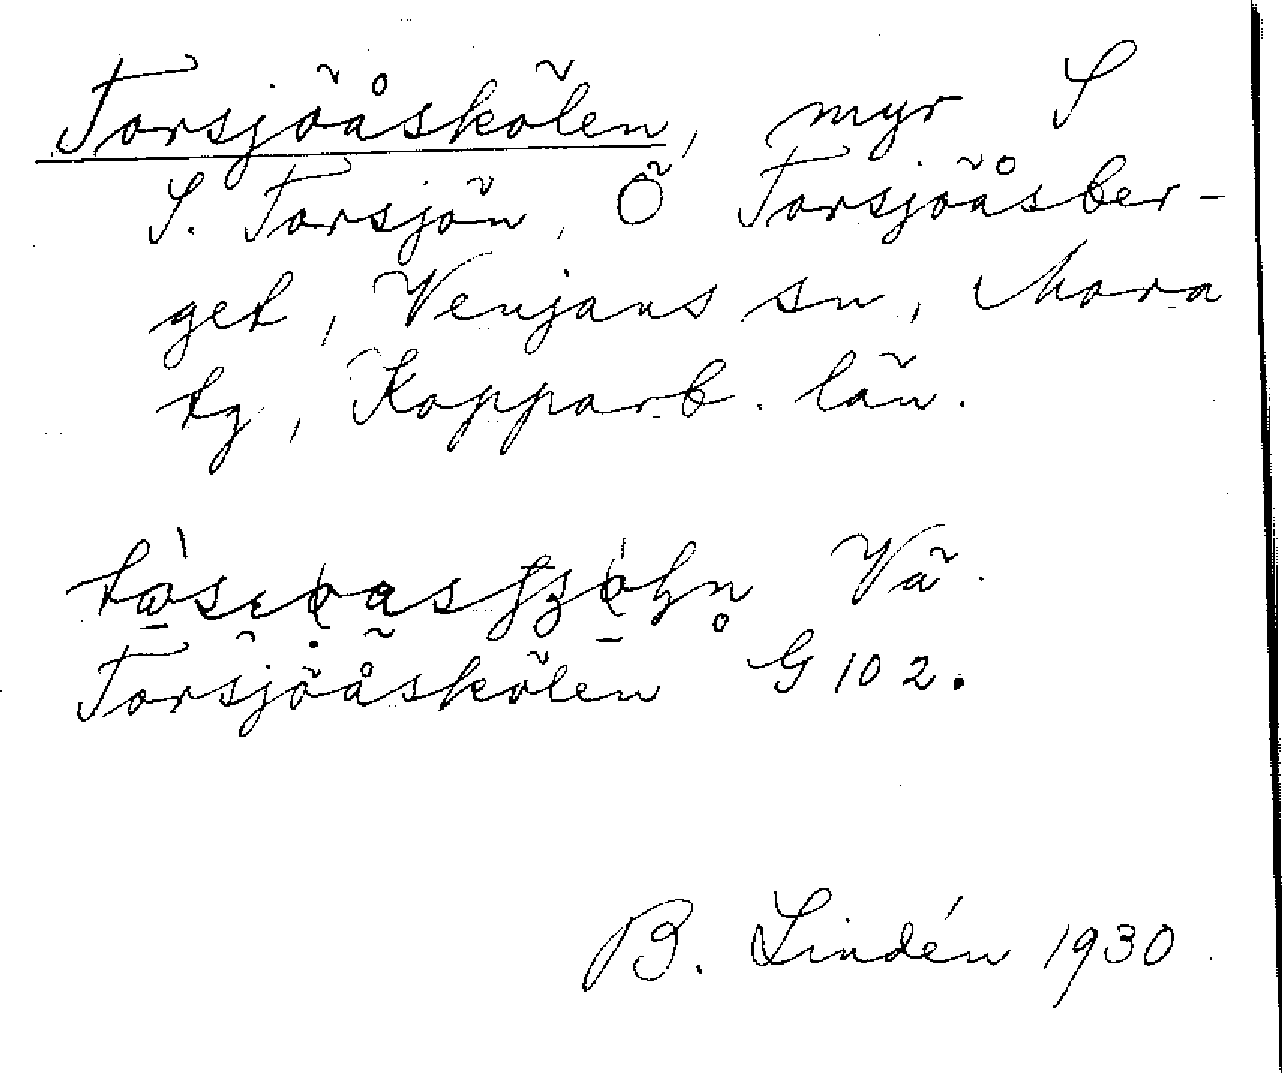 Torsjöåskölen, myr S
S. Torsjön, Ö Torsjöåsber-
get, Venjans sn, Mora
tg, Kopparb. län.
Vä.
Torsjöåskölen G 102.
B. Lindén 1930